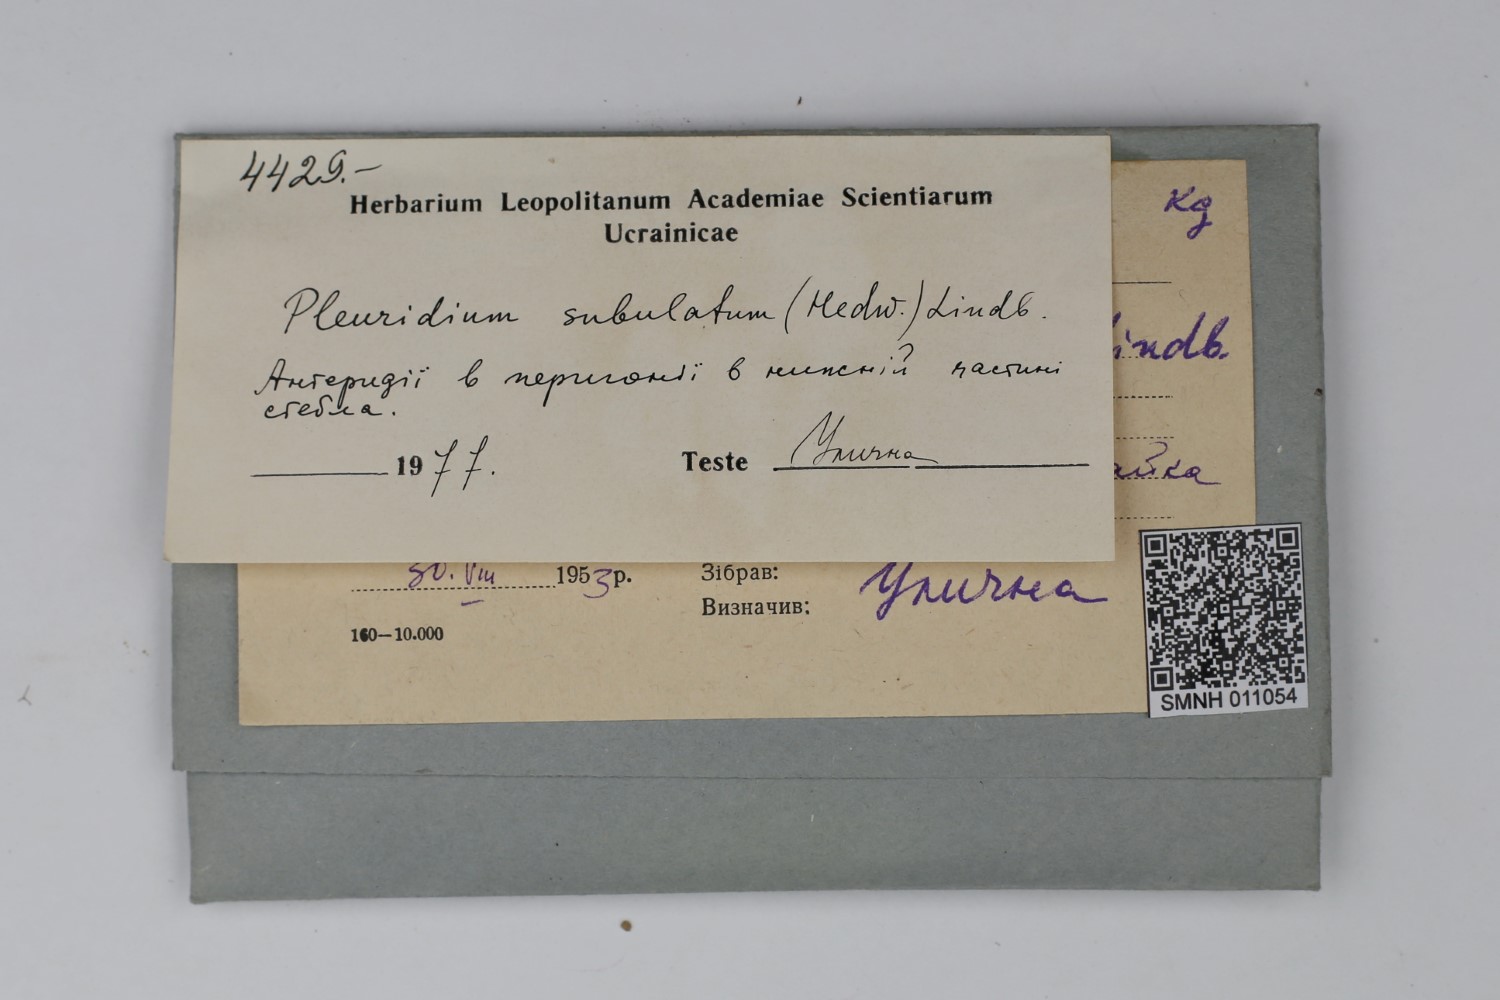 4429.-
Herbarium Leopolitanum Academiae Scientiarum
Ucrainicae
Kg
Pleuridium subulatum (Hedw.) Lindb.
Lindb.
Антеридії в перигонії в нижній частині
стебла.
1977.
Teste Улична
айка
30. VIII 1953 р.
Зібрав:
Визначив:
Улична
160—10.000
SMNH 011054